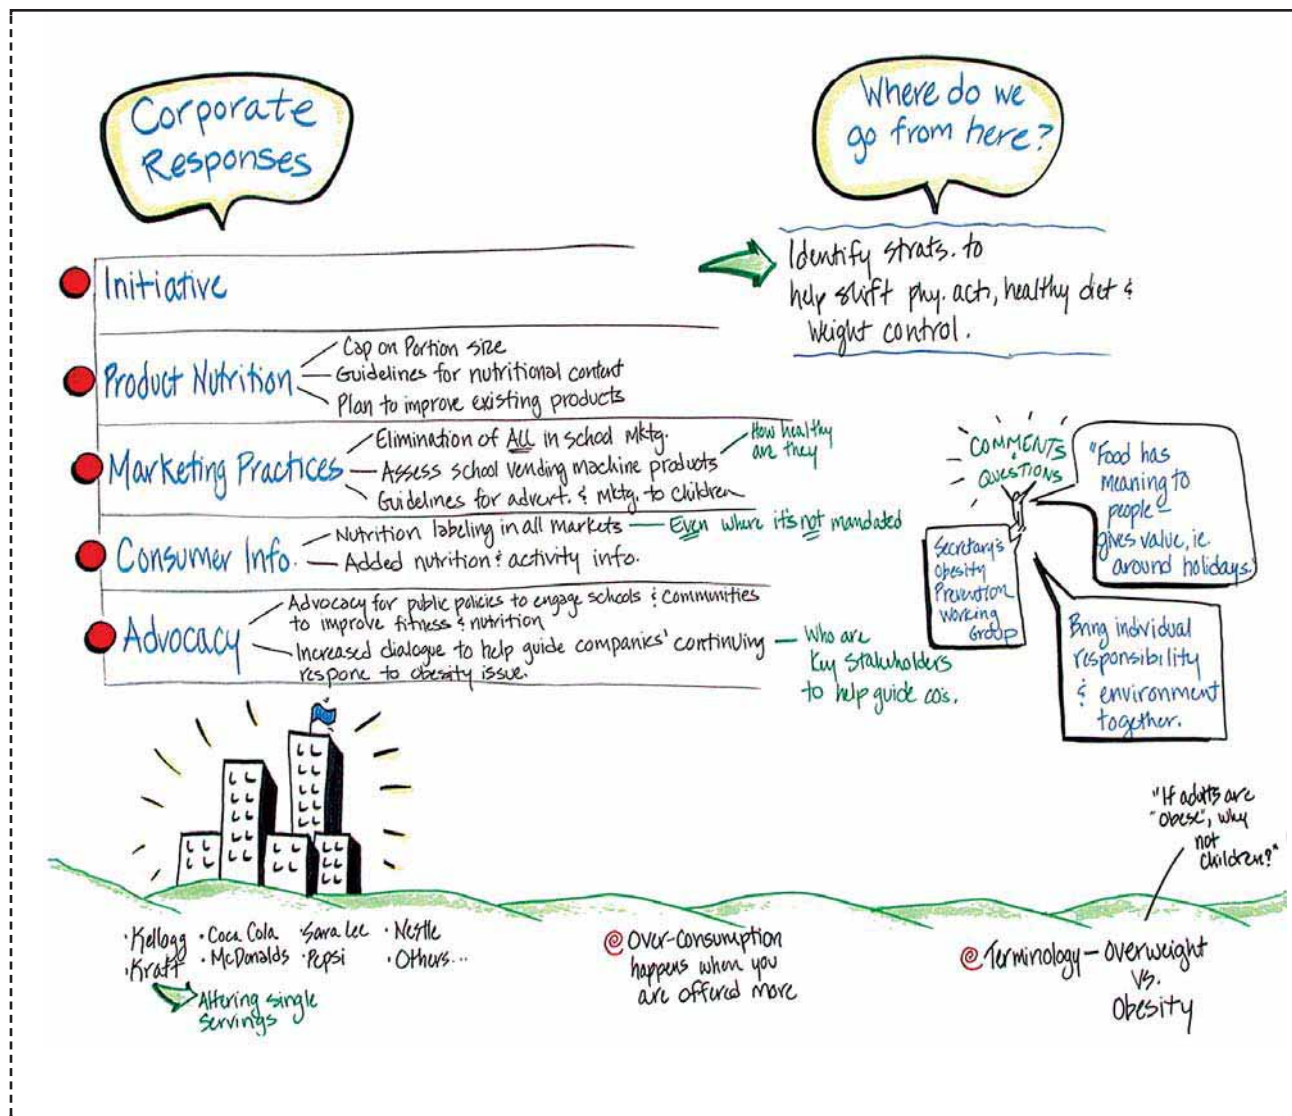 Corporate
Responses
Initiative
Product Nutrition
Cap on Portion size
Guidelines for nutritional content
Plan to improve existing products
Marketing Practices
Elimination of ALL in school mktg.
Assess school vending machine products
How healthy
are they
Guidelines for advert. & mktg. to children
Consumer Info.
Nutrition labeling in all markets — Even where it's not mandated
Added nutrition & activity info.
Advocacy
Advocacy for public policies to engage schools & communities
to improve fitness & nutrition
Increased dialogue to help guide companies' continuing
respone to obesity issue.
Who are
Key Stakeholders
to help guide co's.
Where do we
go from here?
Identify strats. to
help shift phy. act., healthy diet &
Weight control.
COMMENTS
&
QUESTIONS
Secretary's
Obesity
Prevention
Working
Group
"Food has
meaning to
people –
gives value, ie.
around holidays."
Bring individual
responsibility
& environment
together.
• Kellogg
• Kraft
• Coca Cola
• McDonalds
• Sara Lee
• Pepsi
• Nestle
• Others...
Altering single
servings
Over-Consumption
happens when you
are offered more
"If adults are
"obese", why
not
children?"
Terminology – Overweight
vs.
Obesity